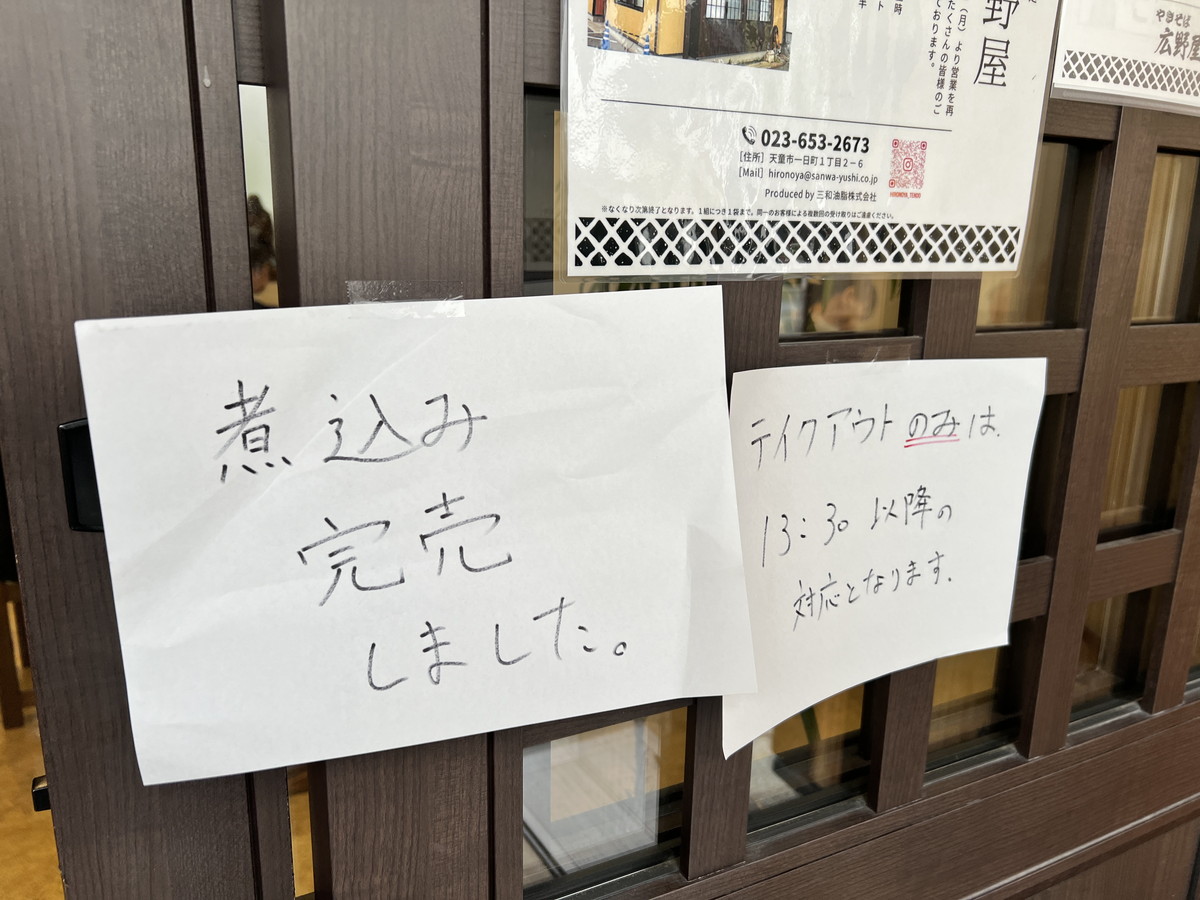 野屋
(月)より営業を再
たくさんの皆様のご
ております。
023-653-2673
[住所] 天童市一日町1丁目2-6
[Mail] hironoya@sanwa-yushi.co.jp
Produced by 三和油脂株式会社
HIRONOYA_TENDO
※なくなり次第終了となります。1組につき1袋まで。同一のお客様による複数回の受け取りはご遠慮ください。
やきそば
広野屋
煮込み
完売
しました。
テイクアウトのみは、
13:30 以降の
対応となります。